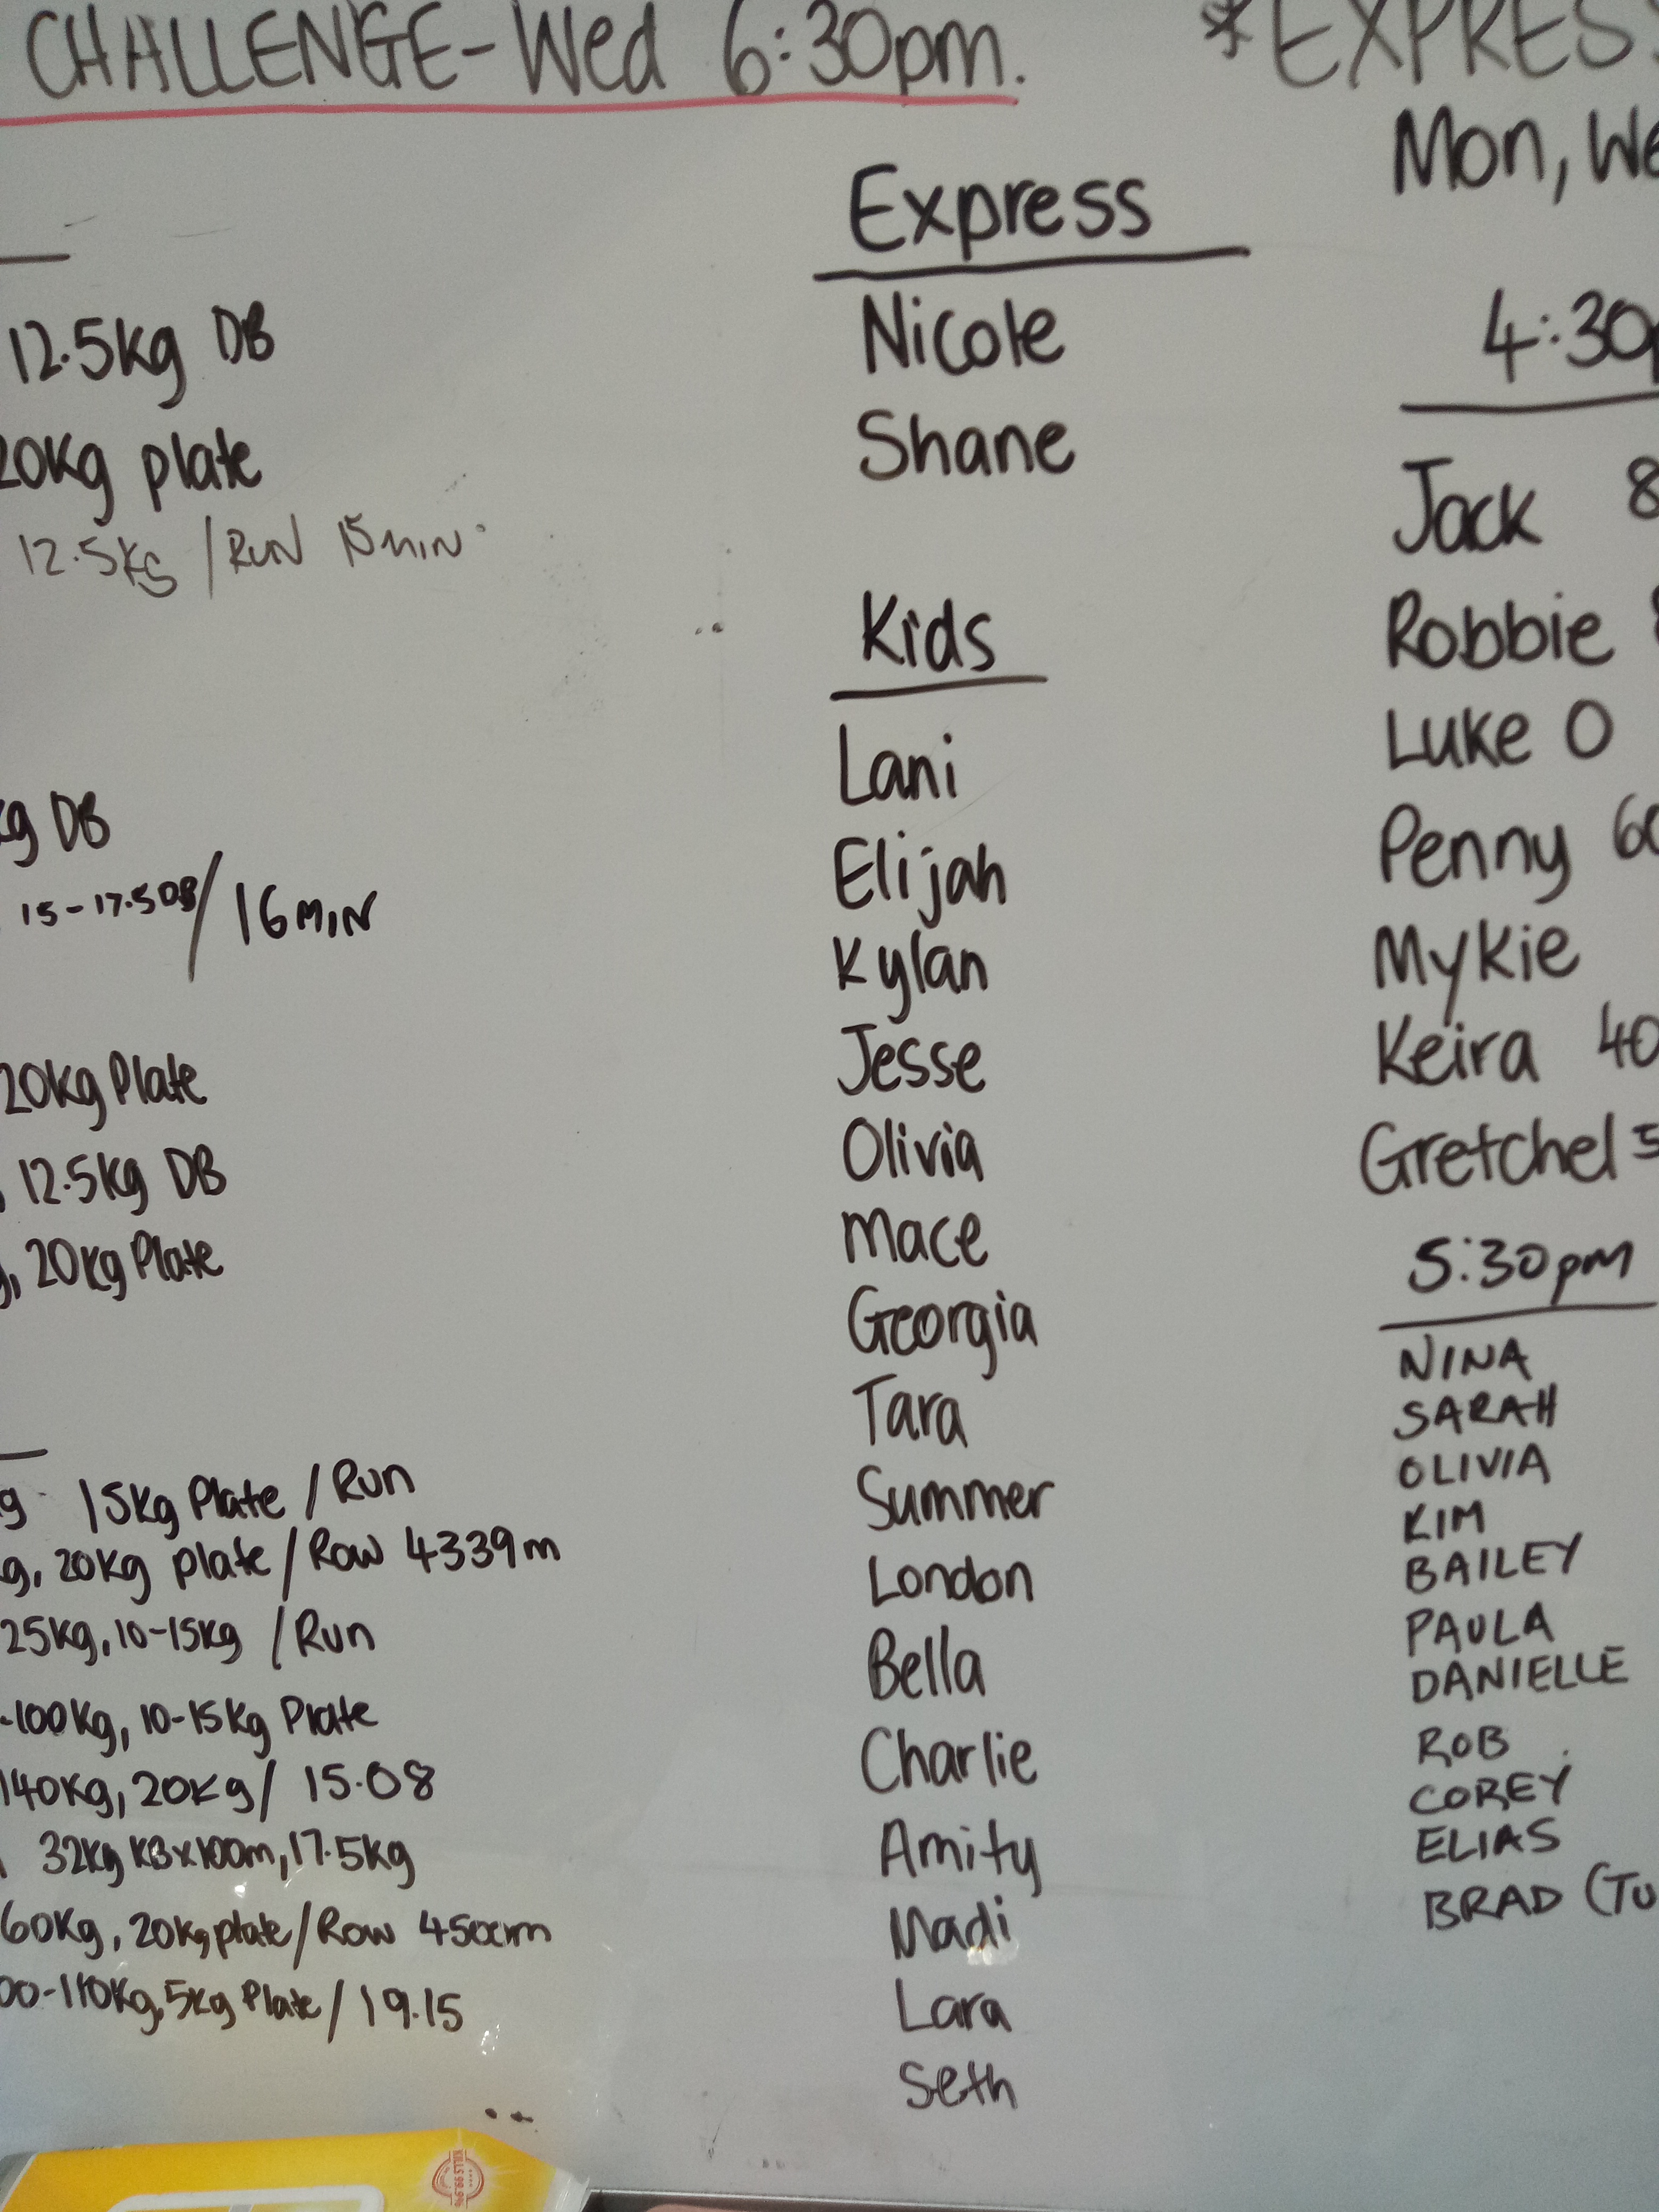 CHALLENGE-Wed 6:30pm.
12.5kg DB
20Kg plate
12.5kg /RUN 15MIN
kg DB
15-17.5DB/16MIN
20kg Plate
12.5kg DB
, 20kg Plate
g 15kg Plate /Run
g, 20kg plate/Row 4339m
25kg, 10-15kg /Run
-100kg, 10-15kg Plate
140kg, 20kg/ 15.08
32kg KBx100m, 17.5kg
60kg, 20kg plate/Row 4500m
00-110kg, 5kg Plate/19.15
Express
Nicole
Shane
Kids
Lani
Elijah
Kylan
Jesse
Olivia
Mace
Georgia
Tara
Summer
London
Bella
Charlie
Amity
Madi
Lara
Seth
*EXPRESS
Mon, We
4:30p
Jack 8
Robbie
Luke O
Penny 60
Mykie
Keira 40
Gretchel 5
5:30pm
NINA
SARAH
OLIVIA
KIM
BAILEY
PAULA
DANIELLE
ROB
COREY
ELIAS
BRAD (TU
KILLS 99.9%